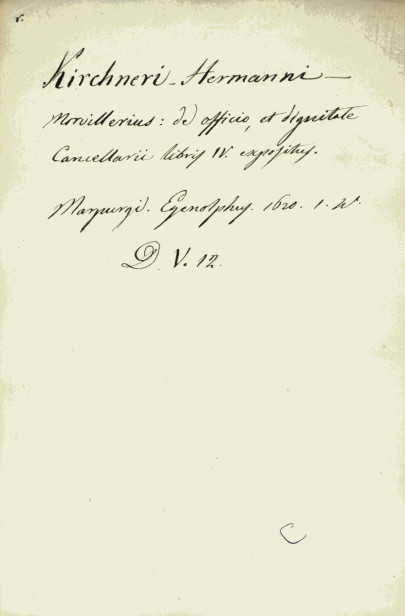 Kirchneri - Hermanni -
Morvillerius: de officio, et dignitate
Cancellarii libris IV. expositus.
Marpurgi. Egenolphus. 1620. 1.
D. V. 12.
C